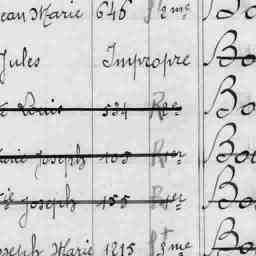 ean Marie 646 2me Bo
Jules Impropre Bo
Louis 534 Bo
Joseph 105 Bou
Joseph 155 Bo
oseph Marie 1215 2me Bo